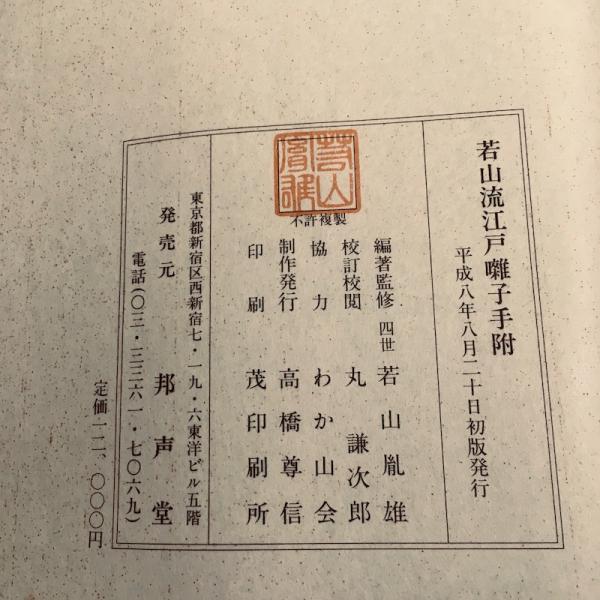 若山流江戸囃子手附
平成八年八月二十日初版発行
不許複製
編著監修 四世 若山胤雄
校訂校閲 丸謙次郎
協力 わか山会
制作発行 高橋尊信
印刷 茂印刷所
東京都新宿区西新宿七・一九・六東洋ビル五階
発売元 邦声堂
電話(〇三・三三六一・七〇六九)
定価一二、〇〇〇円